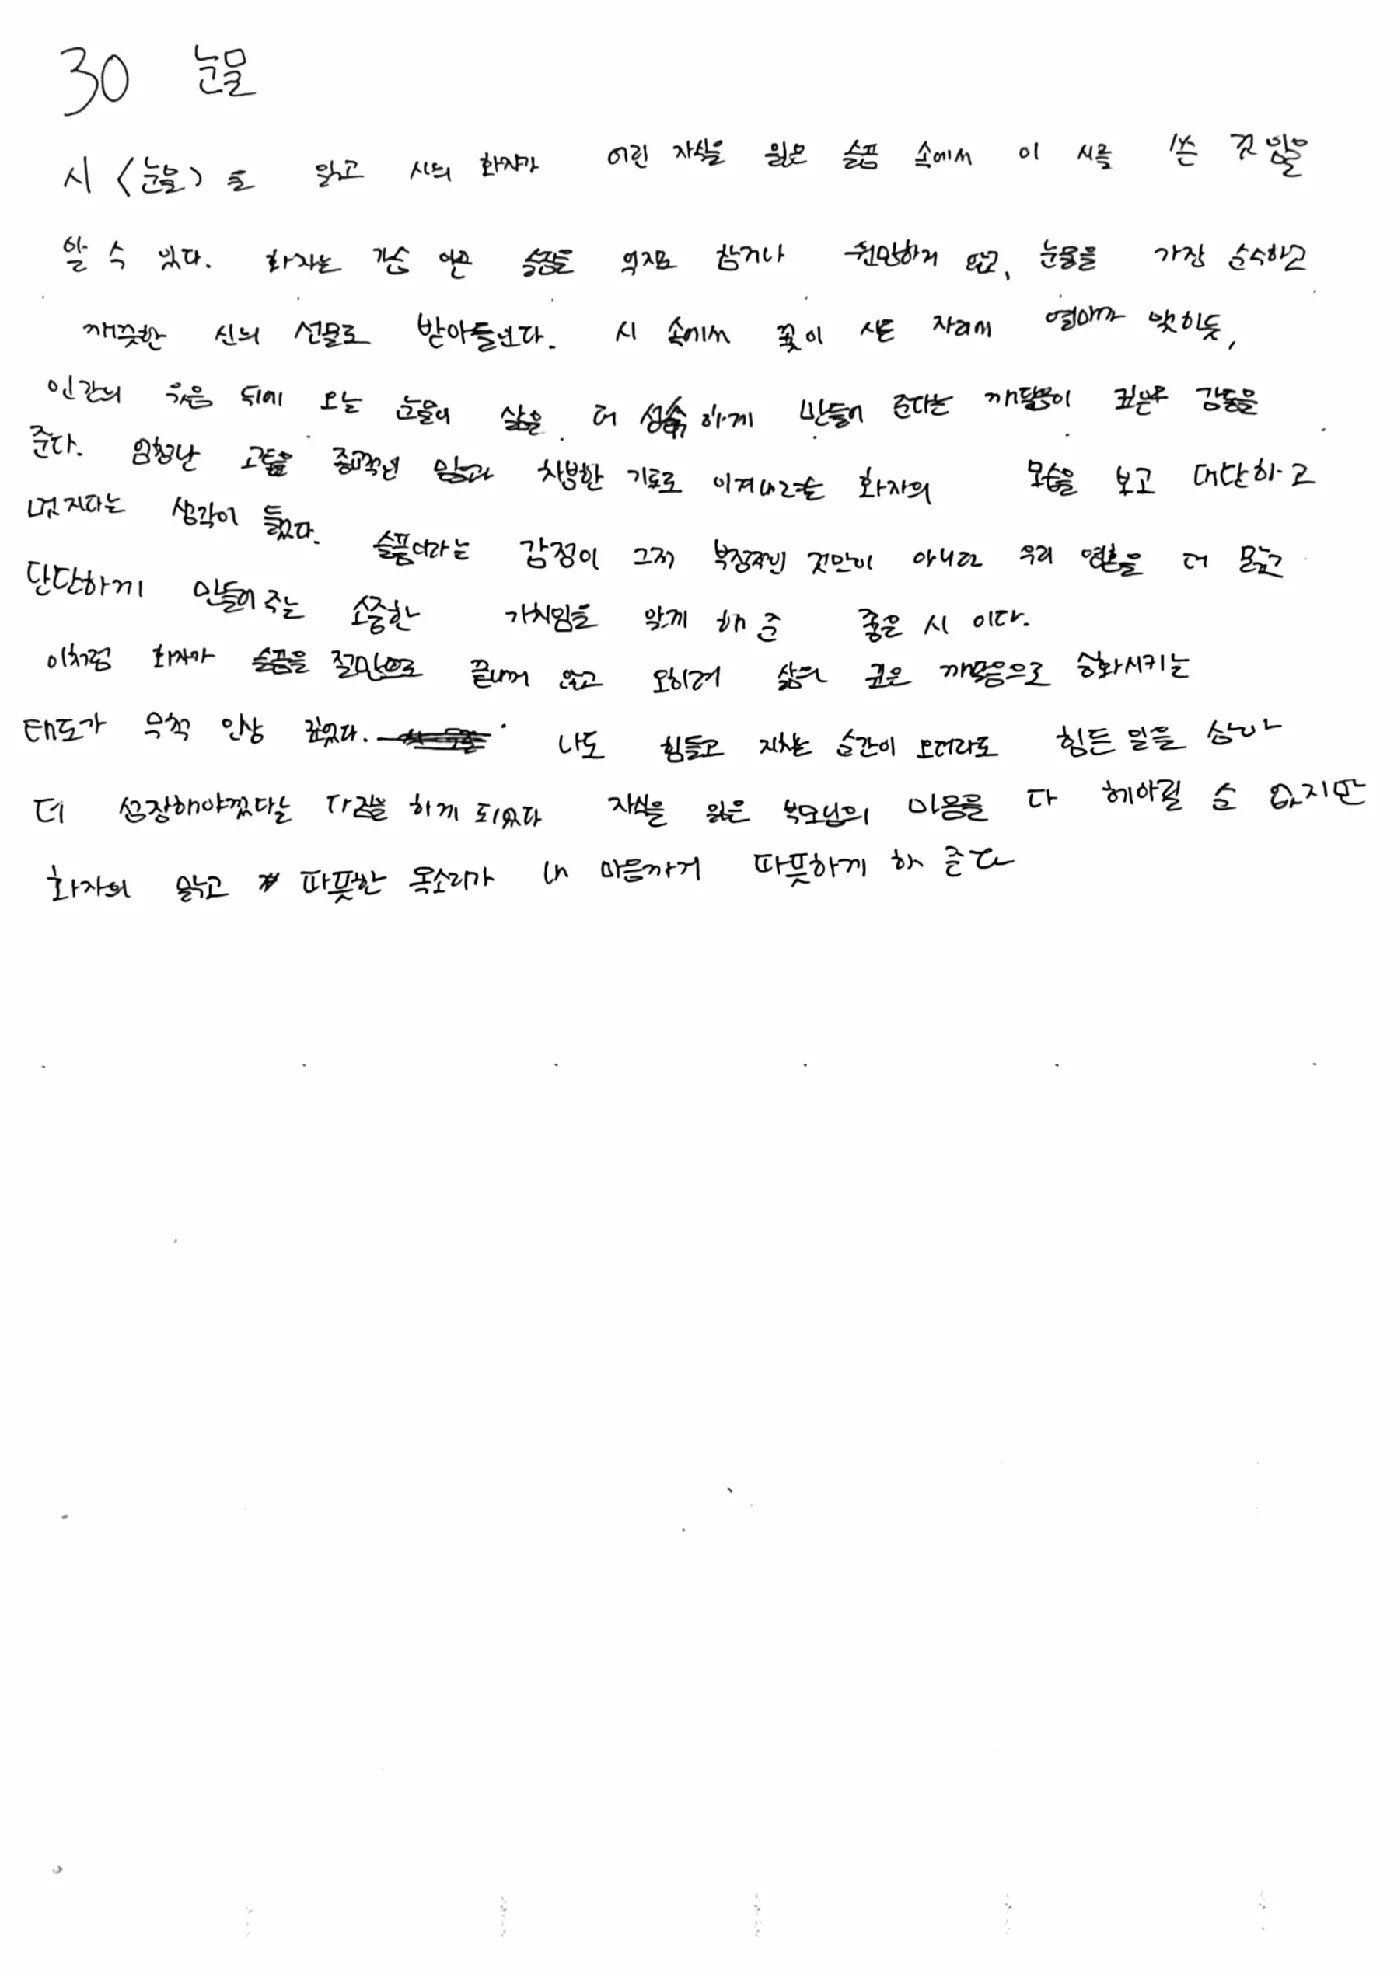 30 눈물
시 <눈물>을 읽고 시의 화자가 어린 자식을 잃은 슬픔 속에서 이 시를 쓴 것임을
알 수 있다. 화자는 가슴 아픈 슬픔을 억지로 참거나 원망하지 않고, 눈물을 가장 순수하고
깨끗한 신의 선물로 받아들인다. 시 속에서 꽃이 시든 자리에 열매가 맺히듯,
인간의 웃음 뒤에 오는 눈물이 삶을 더 성숙하게 만들어 준다는 깨달음이 깊은 감동을
준다. 엄청난 고통을 종교적인 믿음과 차분한 기도로 이겨내려는 화자의 모습을 보고 대단하고
멋지다는 생각이 들었다. 슬픔이라는 감정이 그저 부정적인 것만이 아니라 우리 영혼을 더 맑고
단단하게 만들어주는 소중한 가치임을 알게 해 준 좋은 시 이다.
이처럼 화자가 슬픔을 절망으로 끝내지 않고 오히려 삶의 깊은 깨달음으로 승화시키는
태도가 무척 인상 깊었다. 나도 힘들고 지치는 순간이 오더라도 힘든 일을 삼아
더 성장해야겠다는 다짐을 하게 되었다 자식을 잃은 부모님의 마음을 다 헤아릴 순 없지만
화자의 맑고 따뜻한 목소리가 내 마음까지 따뜻하게 해 준다